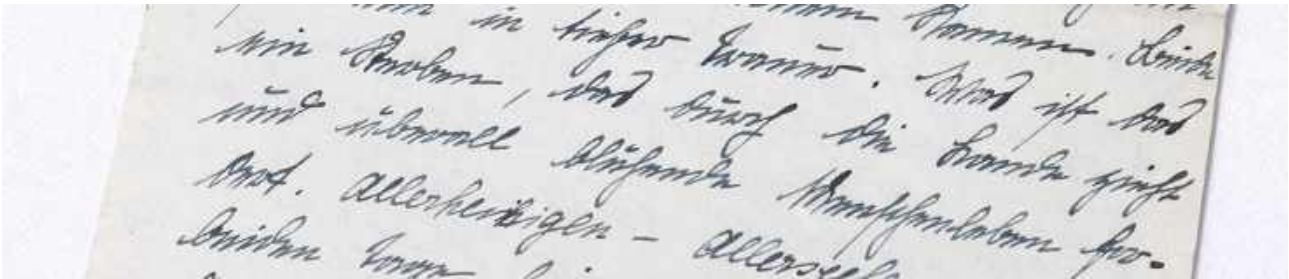 in tiefer Trauer. Was ist das
ein Sterben, das durch die Lande zieht
und überall blühende Menschenleben for-
dert. Allerheiligen – Allerseel
beiden Tage